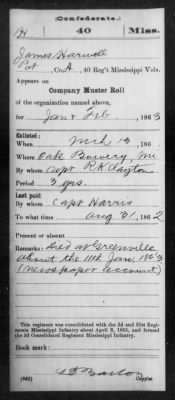 Confederate.
H 40 Miss.
James Harwell
Pvt, Co. A, 40 Reg't Mississippi Vols.
Appears on
Company Muster Roll
of the organization named above,
for Jan & Feb, 1863
Enlisted:
When Mch 13, 186 .
Where Oak Bowery, Mi
By whom Capt R.K. Clayton
Period 3 yrs.
Last paid:
By whom Capt Harris
To what time Aug 31, 1862
Present or absent
Remarks: Died at Greenville
about the 11th Jan. 1863
(newspaper account)
This regiment was consolidated with the 3d and 31st Regi-
ments Mississippi Infantry about April 9, 1865, and formed
the 3d Consolidated Regiment Mississippi Infantry.
Book mark:
(642) Barton
Copyist.